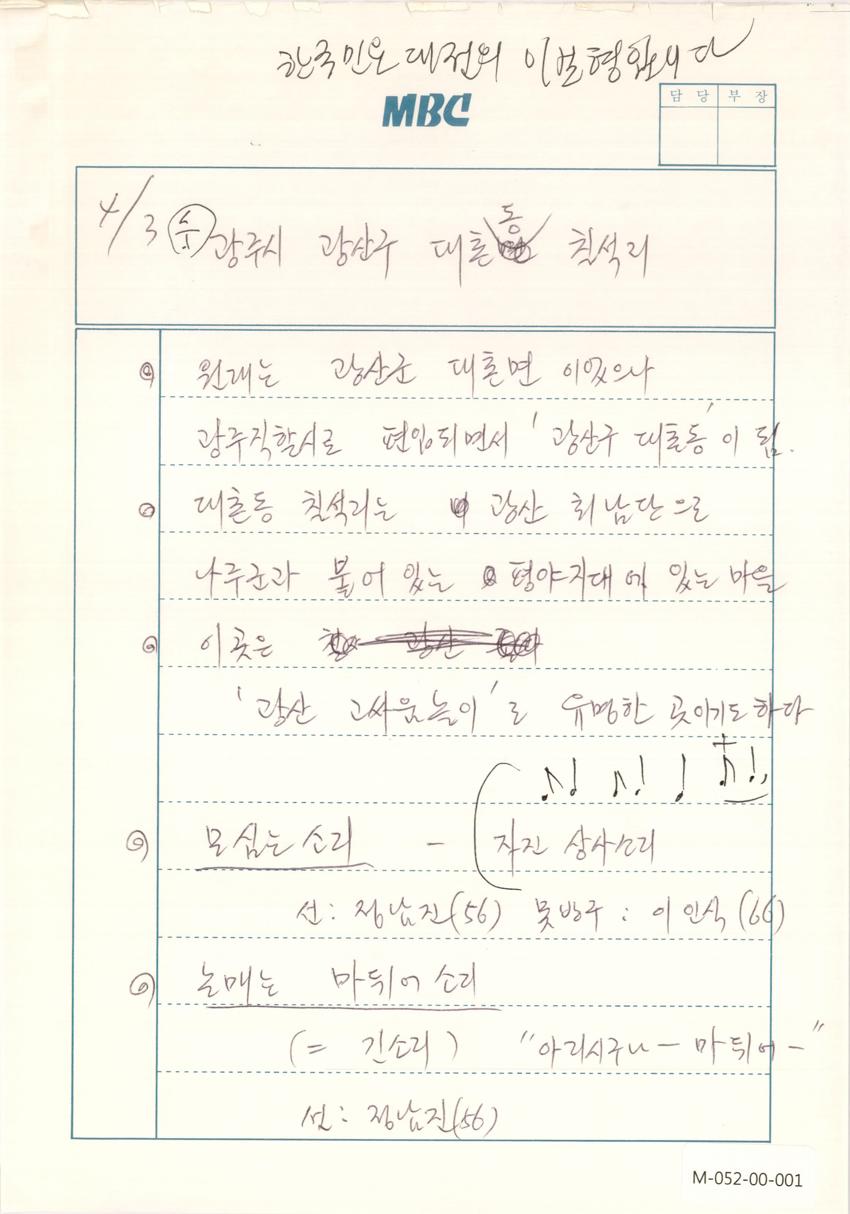 한국민요대전의 이보형입니다
MBC
담 당 부 장
4/3 (수) 광주시 광산구 대촌동 칠석리
원래는 광산군 대촌면 이었으나
광주직할시로 편입되면서 '광산구 대촌동'이 됨.
대촌동 칠석리는 광산 최남단으로
나주군과 붙어 있는 평야지대에 있는 마을
이곳은
'광산 고싸움놀이'로 유명한 곳이기도 하다
모심는 소리 - 자진 상사소리
선: 정남진(56) 못방구: 이인식(66)
논매는 마뒤어 소리
(= 긴소리) "아리시구나 - 마뒤어 -"
선: 정남진(56)
M-052-00-001